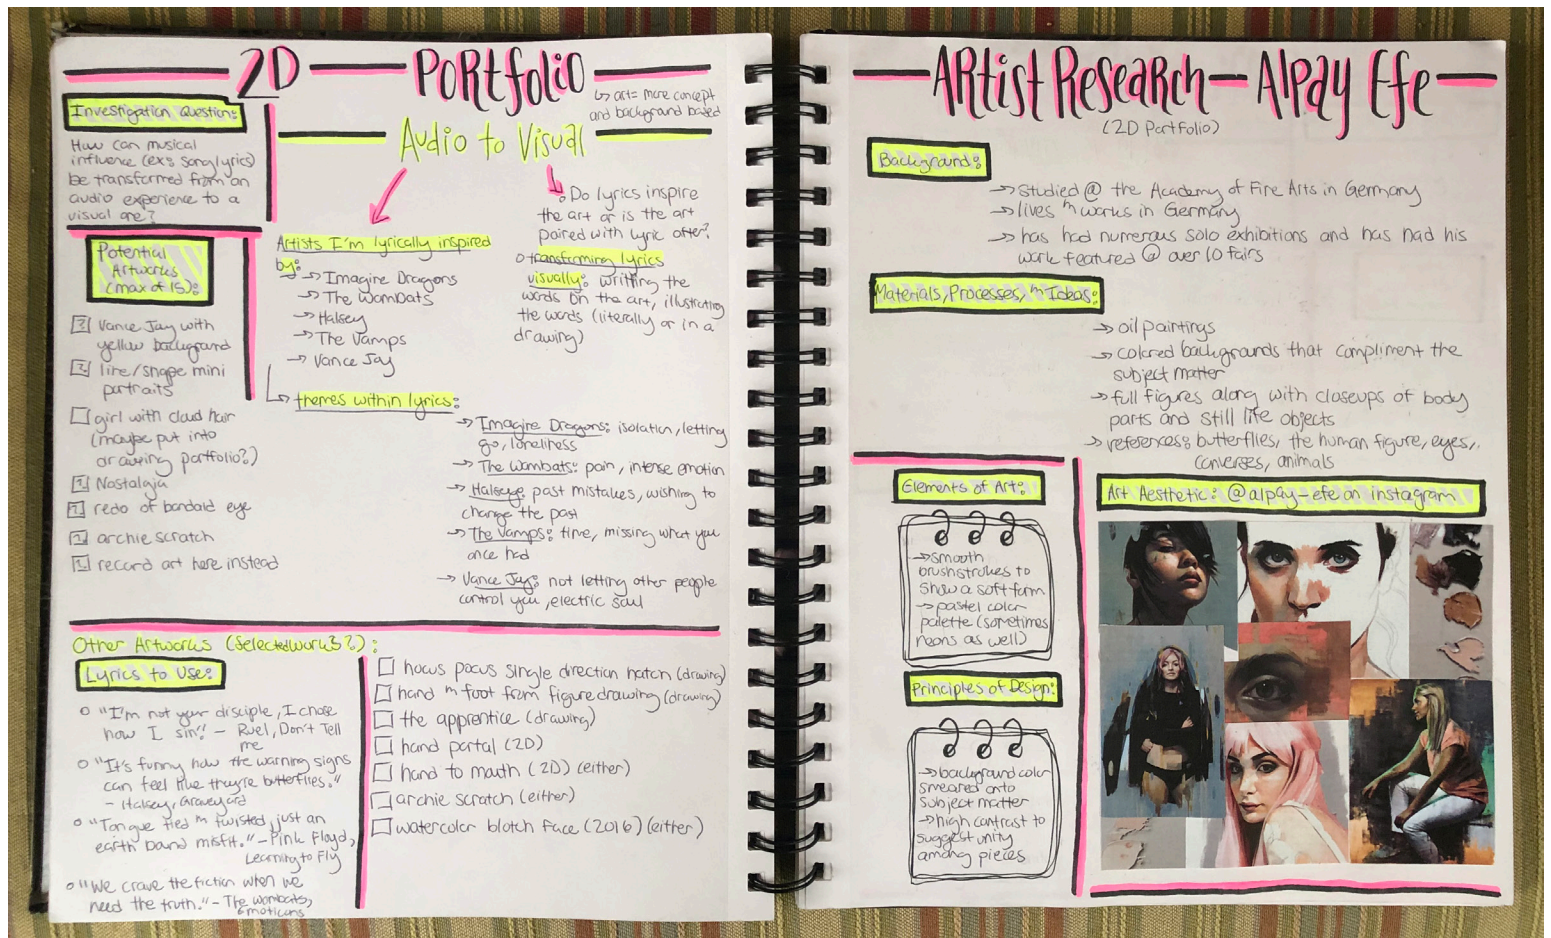 2D PORTfOliO
↳ art = more concept
and background based
Investigation Question:
How can musical
influence (ex: song lyrics)
be transformed from an
audio experience to a
visual one?
Audio to Visual
Potential
Artworks
(max of 15):
Vance Jay with
yellow background
line/shape mini
portraits
girl with cloud hair
(maybe put into
drawing portfolio?)
Nostalgia
redo of bandaid eye
archie scratch
record art here instead
Artists I'm lyrically inspired
by:
→ Imagine Dragons
→ The Wombats
→ Halsey
→ The Vamps
→ Vance Jay
Do lyrics inspire
the art or is the art
paired with lyric after?
o transforming lyrics
visually: writting the
words on the art, illustrating
the words (literally or in a
drawing)
themes within lyrics:
→ Imagine Dragons: isolation, letting
go, loneliness
→ The Wombats: pain, intense emotion
→ Halsey: past mistakes, wishing to
change the past
→ The Vamps: time, missing what you
once had
→ Vance Jay: not letting other people
control you, electric soul
Other Artworks (Selected works?):
Lyrics to Use:
o "I'm not your disciple, I chose
how I sin" - Ruel, Don't Tell
me
o "It's funny how the warning signs
can feel like they're butterflies."
- Halsey, Graveyard
o "Tongue tied m twisted, just an
earth bound misfit." - Pink Floyd,
Learning to Fly
o "We crave the fiction when we
need the truth." - The Wombats,
Emoticons
hocus pocus single direction hatch (drawing)
hand m foot from figure drawing (drawing)
the apprentice (drawing)
hand portal (2D)
hand to mouth (2D) (either)
archie scratch (either)
watercolor blotch face (2016) (either)
ARtist ReseaRch - Alpay Efe
(2D Portfolio)
Background:
→ studied @ the Academy of Fine Arts in Germany
→ lives m works in Germany
→ has had numerous solo exhibitions and has had his
work featured @ over 10 fairs
Materials, Processes, m Ideas:
→ oil paintings
→ colored backgrounds that compliment the
subject matter
→ full figures along with closeups of body
parts and still life objects
→ references: butterflies, the human figure, eyes,
converses, animals
Elements of Art:
→ smooth
brushstrokes to
show a soft form
→ pastel color
palette (sometimes
neons as well)
Principles of Design:
→ background color
smeared onto
subject matter
→ high contrast to
suggest unity
among pieces
Art Aesthetic: @alpay-efe on instagram